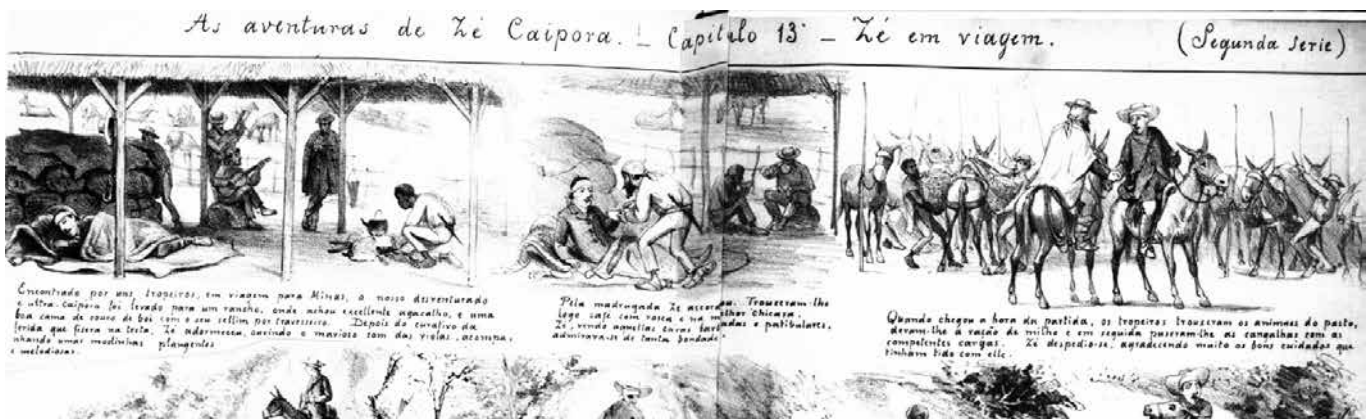 As aventuras de Zé Caipora. — Capitulo 13° — Zé em viagem. (Segunda serie)
Encontrado por uns tropeiros, em viagem para Minas, o nosso desventurado
e ultra-caipora foi levado para um rancho, onde achou excellente agasalho, e uma
boa cama de couro de boi com o seu sellim por travesseiro. Depois do curativo da
ferida que fizera na testa, Zé adormeceu, ouvindo o mavioso som das violas, acompa-
nhando umas modinhas plangentes
e melodiosas.
Pela madrugada Zé Trouxeram-lhe
logo café com rosca e na
Zé, vendo aquellas caras e patibulares,
admirava-se de tanta bondade.
Quando chegou a hora da partida, os tropeiros trouxeram os animaes do pasto,
deram-lhe a ração de milho e em seguida puseram-lhe as cangalhas com as
competentes cargas. Zé despedio-se, agradecendo muito os bons cuidados que
tinham tido com elle.